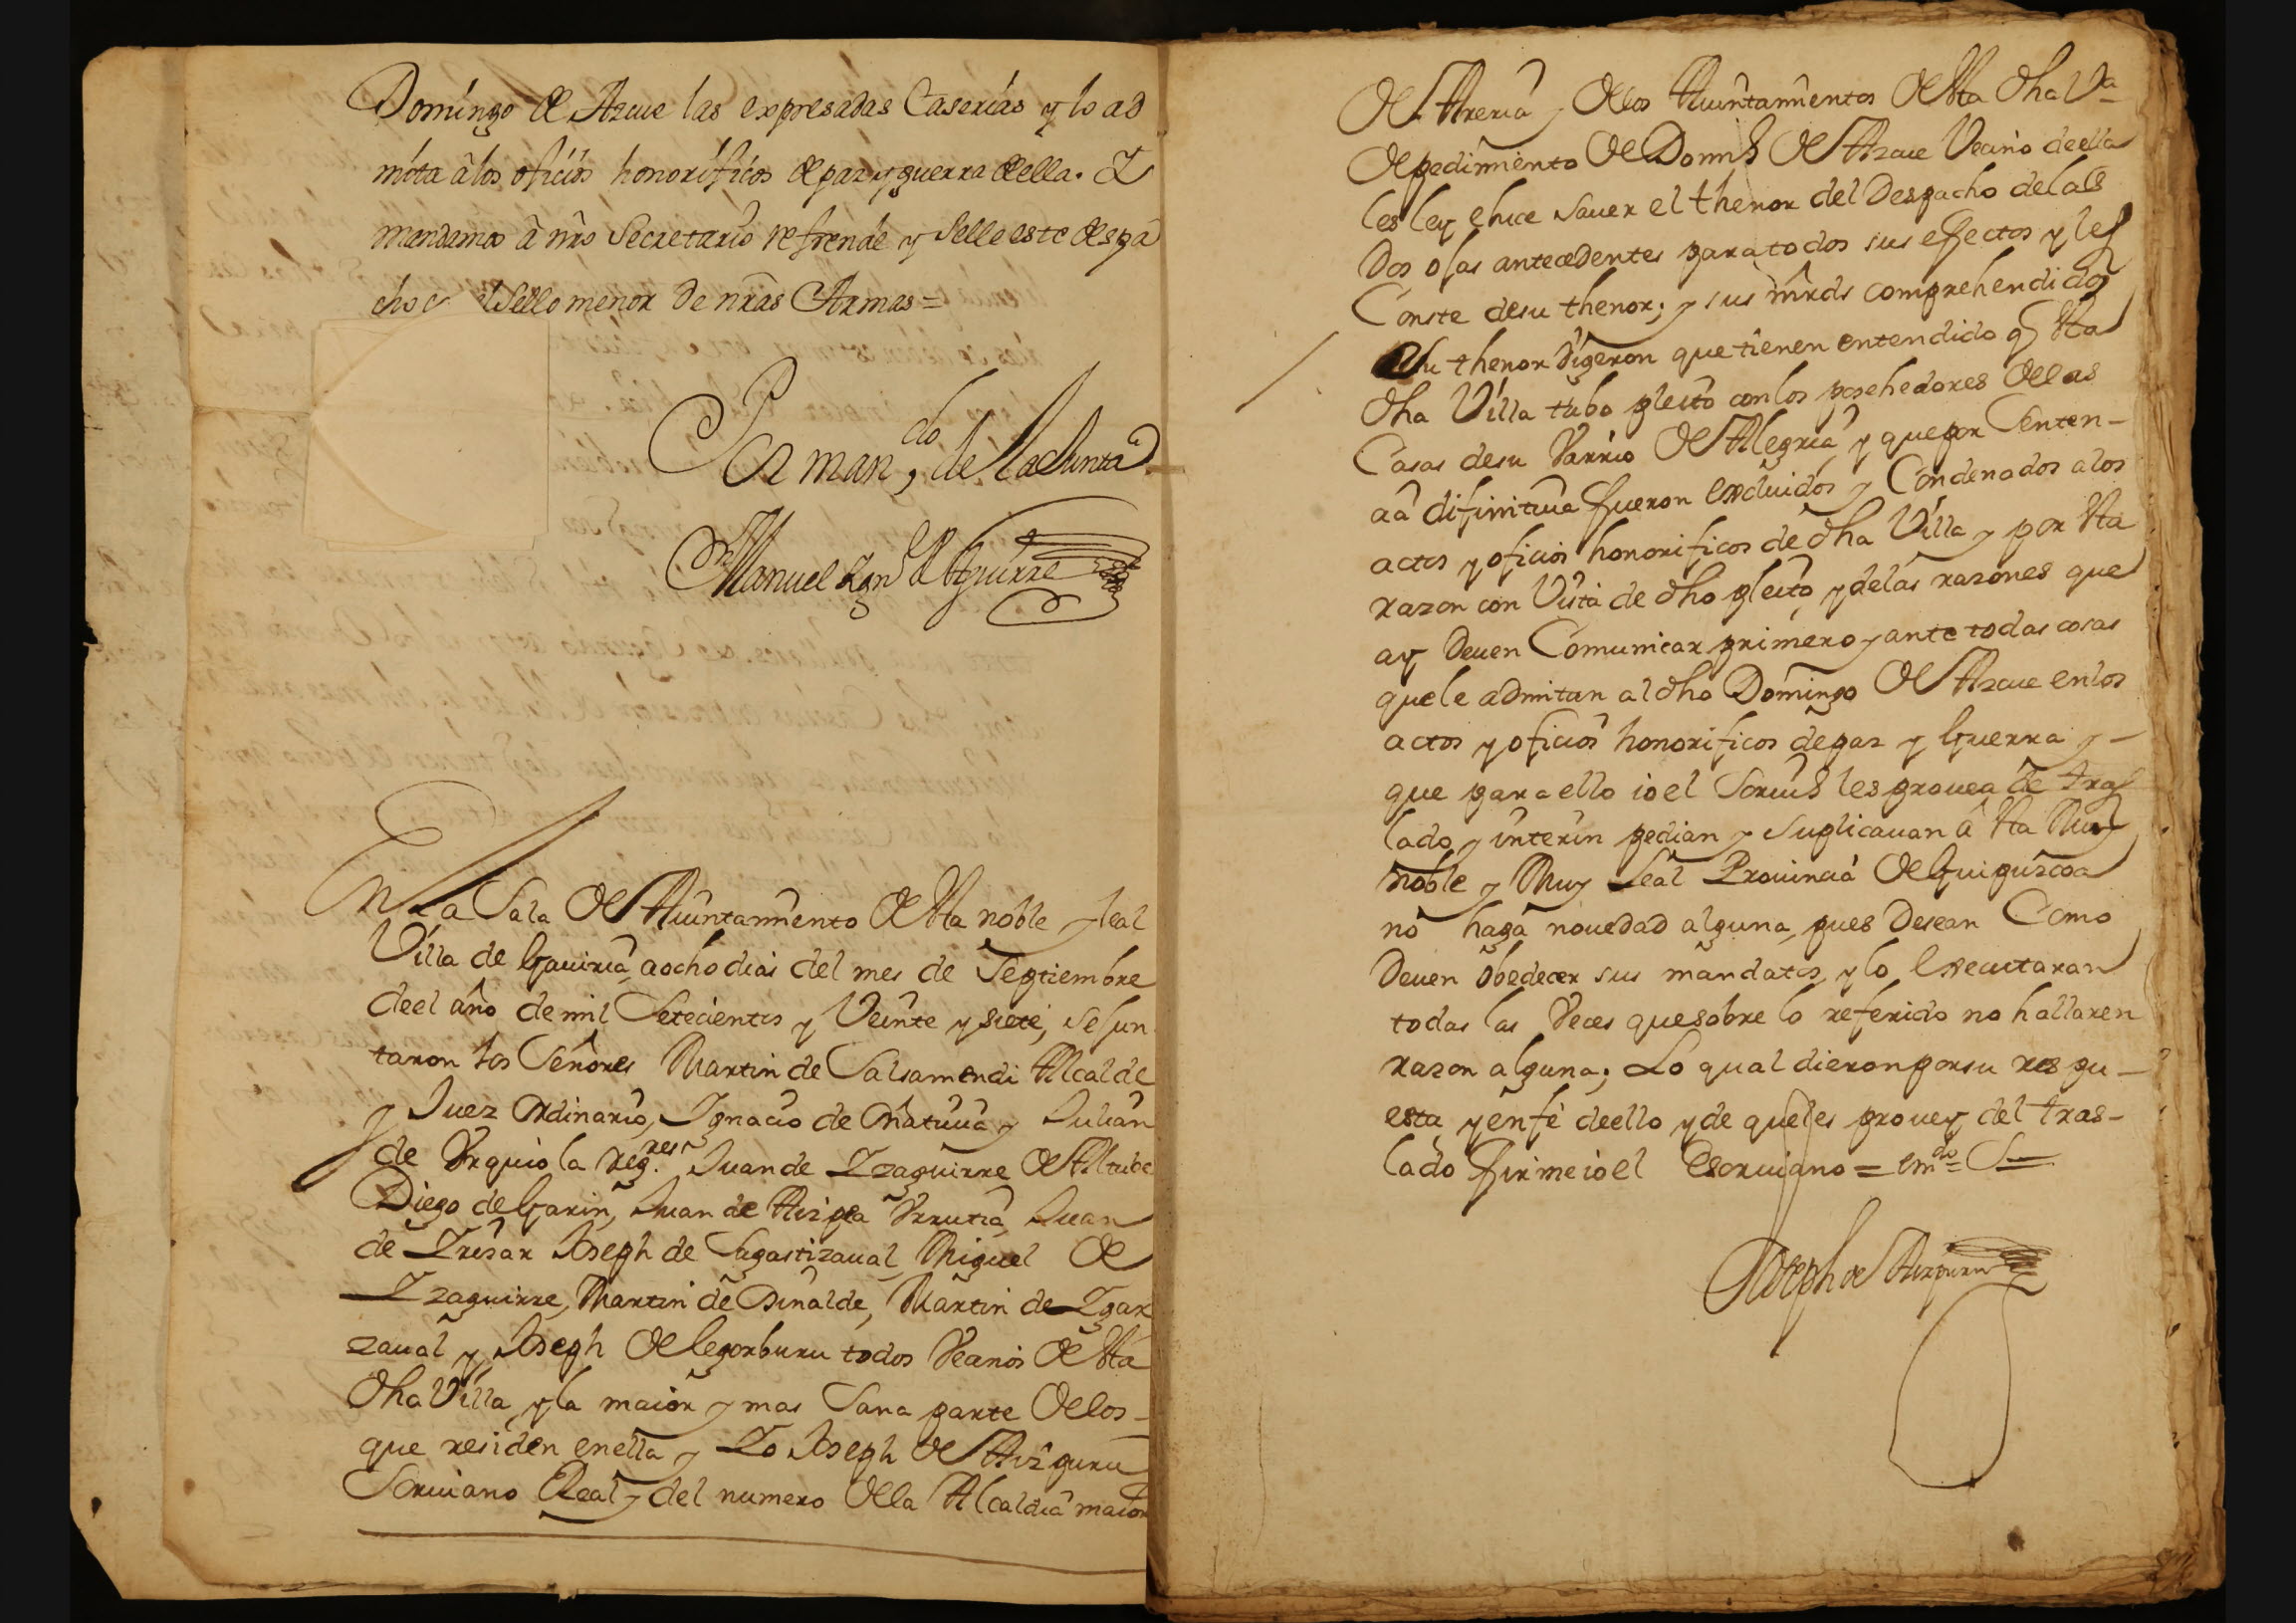 Domingo de Azcue las expresadas Caserias y lo ad
mita â los oficios honorificos de paz y guerra de ella. Y
mandamos â nrō Secretario refrende y selle este despa
cho el Sello menor de nrās Armas =
Por man.do de la Junta
Manuel Ign.o de Aguirre
En La Sala del Aiuntamiento de esta noble y leal
Villa de Gauiria, a ocho dias del mes de Septiembre
de el año de mil Setecientos y Veinte y siete, se Jun
taron los Señores Martin de Salsamendi Alcalde
y Juez ordinario, Ygnacio de Oñatiuia y Julian
de Vrquiola reg.res Juan de Yzaguirre de Altube
Diego de Garin, Juan de Aizpea Vrrutia, Juan
de Yrisar Joseph de Sagastizaual, Miguel de
Yzaguirre, Martin de Osinalde, Martin de Ygar
zaual y Joseph de legorburu todos Vecinos de esta
dha Villa, y la maior y mas Sana parte de los -
que residen en ella y Yo Joseph de Aizpuru
Scriuano Real y del numero de la Alcaldia maior
de Areria y de los Aiuntamientos de esta dha Va
de pedimiento de Domō de Azcue Vecino de ella
les ley e hice sauer el thenor del Despacho de las
Dos ojas antecedentes para todos sus efectos y les
Conste de su thenor; y sus mrds comprehendido
su thenor digeron que tienen entendido q esta
dha Villa tubo pleito con los posehedores de las
Casas de su Varrio de Alegria y que por Senten-
cia difinitiua fueron excluidos y Condenados a los
actos y oficios honorificos de dha Villa y por esta
razon con Vista de dho pleito, y de las razones que
ay Deuen Comunicar primero y ante todas cosas
que le admitan al dho Domingo de Azcue en los
actos y oficios honorificos de paz y Guerra y -
que para ello io el Scriuō les prouea de tras
lado y interin pedian y Suplicauan â esta Muy
noble y Muy Leal Prouincia de Guipuzcoa
no haga nouedad alguna, pues Desean Como
Deuen obedecer sus mandatos, y lo Executaran
todas las Veces que sobre lo referido no hallaren
razon alguna; Lo qual dieron por su respu-
esta y en fè de ello y de que les prouey del tras-
lado firme io el Escriuano = em.do S
Joseph de Aizpuru